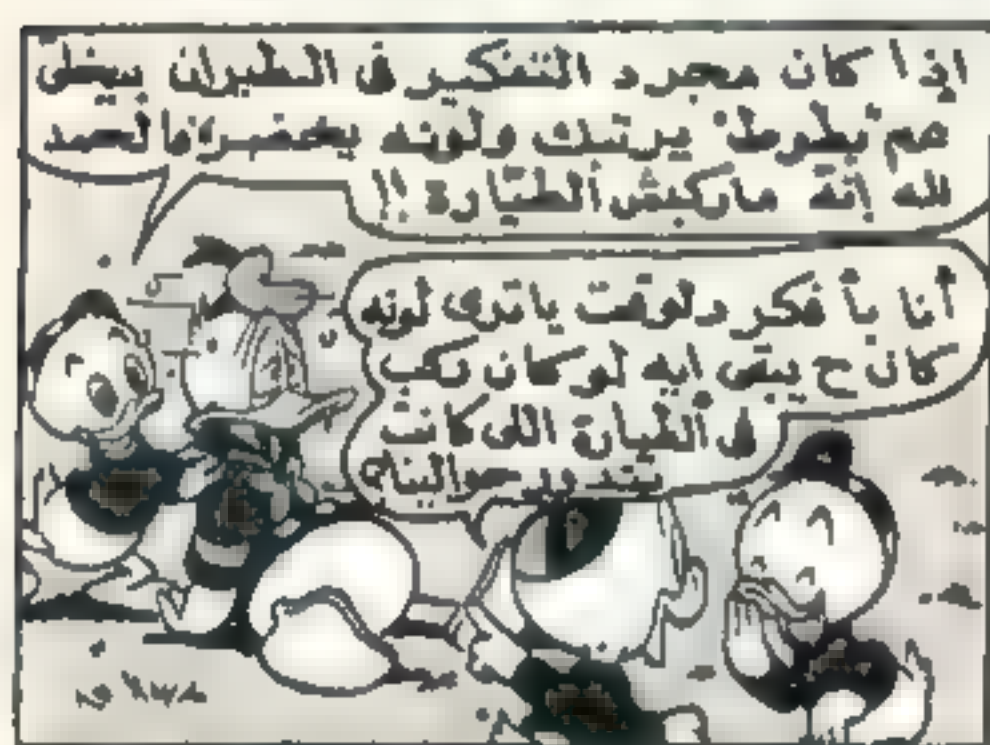 إذا كان مجرد التفكير فى الطيران بيخلى
عم بطوط يرتبك ولونه يخضر فالحمد
لله إنه ماركبش الطيارة !!
أنا بأ فكر دلوقت ياترى لونه
كان ح يبقى ايه لو كان ركب
فى الطيارة اللى كانت
بتدور حوالينا